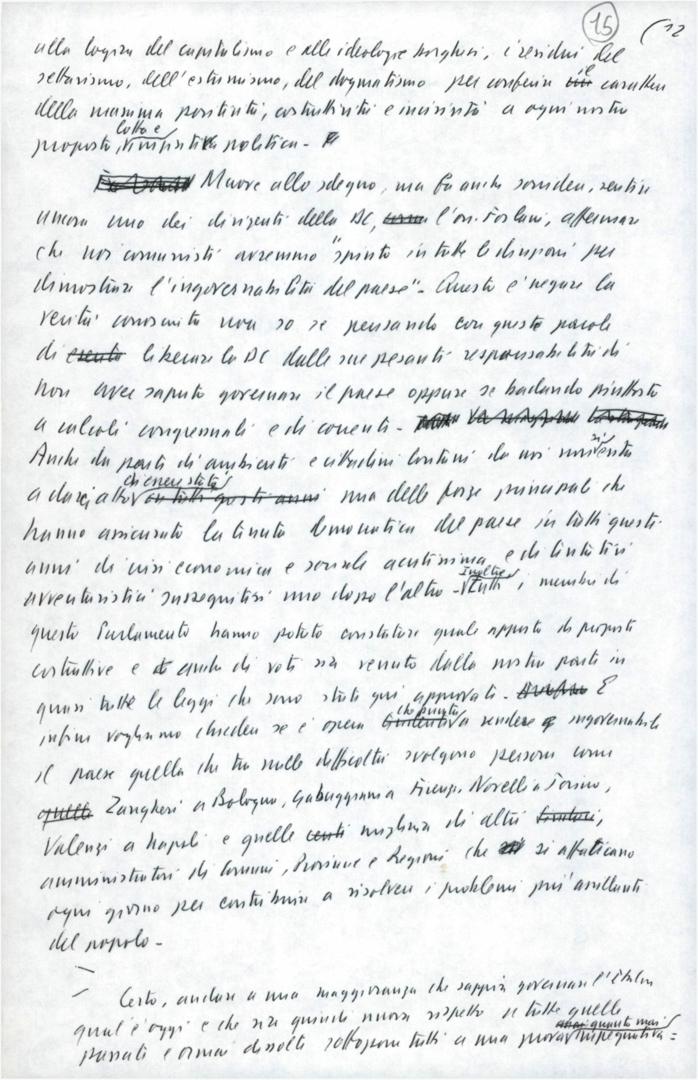 15
12
alla logica del capitalismo e alle ideologie borghesi, i residui del
settarismo, dell'estremismo, del dogmatismo per conferire il carattere
della massima positività, costruttività e incisività a ogni nostra
proposta, lotta e iniziativa politica -
Muove allo sdegno, ma fa anche sorridere, sentire
ancora uno dei dirigenti della DC, l'on. Forlani, affermare
che noi comunisti avremmo "spinto in tutte le direzioni per
dimostrare l'ingovernabilità del paese" - Questo è negare la
verità conosciuta non so se pensando con queste parole
di liberare la DC dalle sue pesanti responsabilità di
non aver saputo governare il paese oppure se badando piuttosto
a calcoli congressuali e di correnti -
Anche da parte di ambienti e cittadini lontani da noi
a darci atto di essere stati una delle forze principali che
hanno assicurato la tenuta democratica del paese in tutti questi
anni di crisi economica e sociale acutissima e di tentativi
avventuristici susseguitisi uno dopo l'altro - Inoltre tutti i membri di
questo Parlamento hanno potuto constatare quale apporto di proposte
costruttive e anche di voti sia venuto dalla nostra parte in
quasi tutte le leggi che sono state qui approvate - E
infine vogliamo chiedere se è opera che punta a rendere ingovernabile
il paese quella che tra mille difficoltà svolgono persone come
Zangheri a Bologna, Gabbuggiani a Firenze, Novelli a Torino,
Valenzi a Napoli e quelle migliaia di altri
amministratori di Comuni, Province e Regioni che si affaticano
ogni giorno per contribuire a risolvere i problemi più assillanti
del popolo -
Certo, andare a una maggioranza che sappia governare l'Italia
qual'è oggi e che sia quindi nuova rispetto a tutte quelle
passate e ormai dissolte sottopone tutti a una prova quanto mai impegnativa =